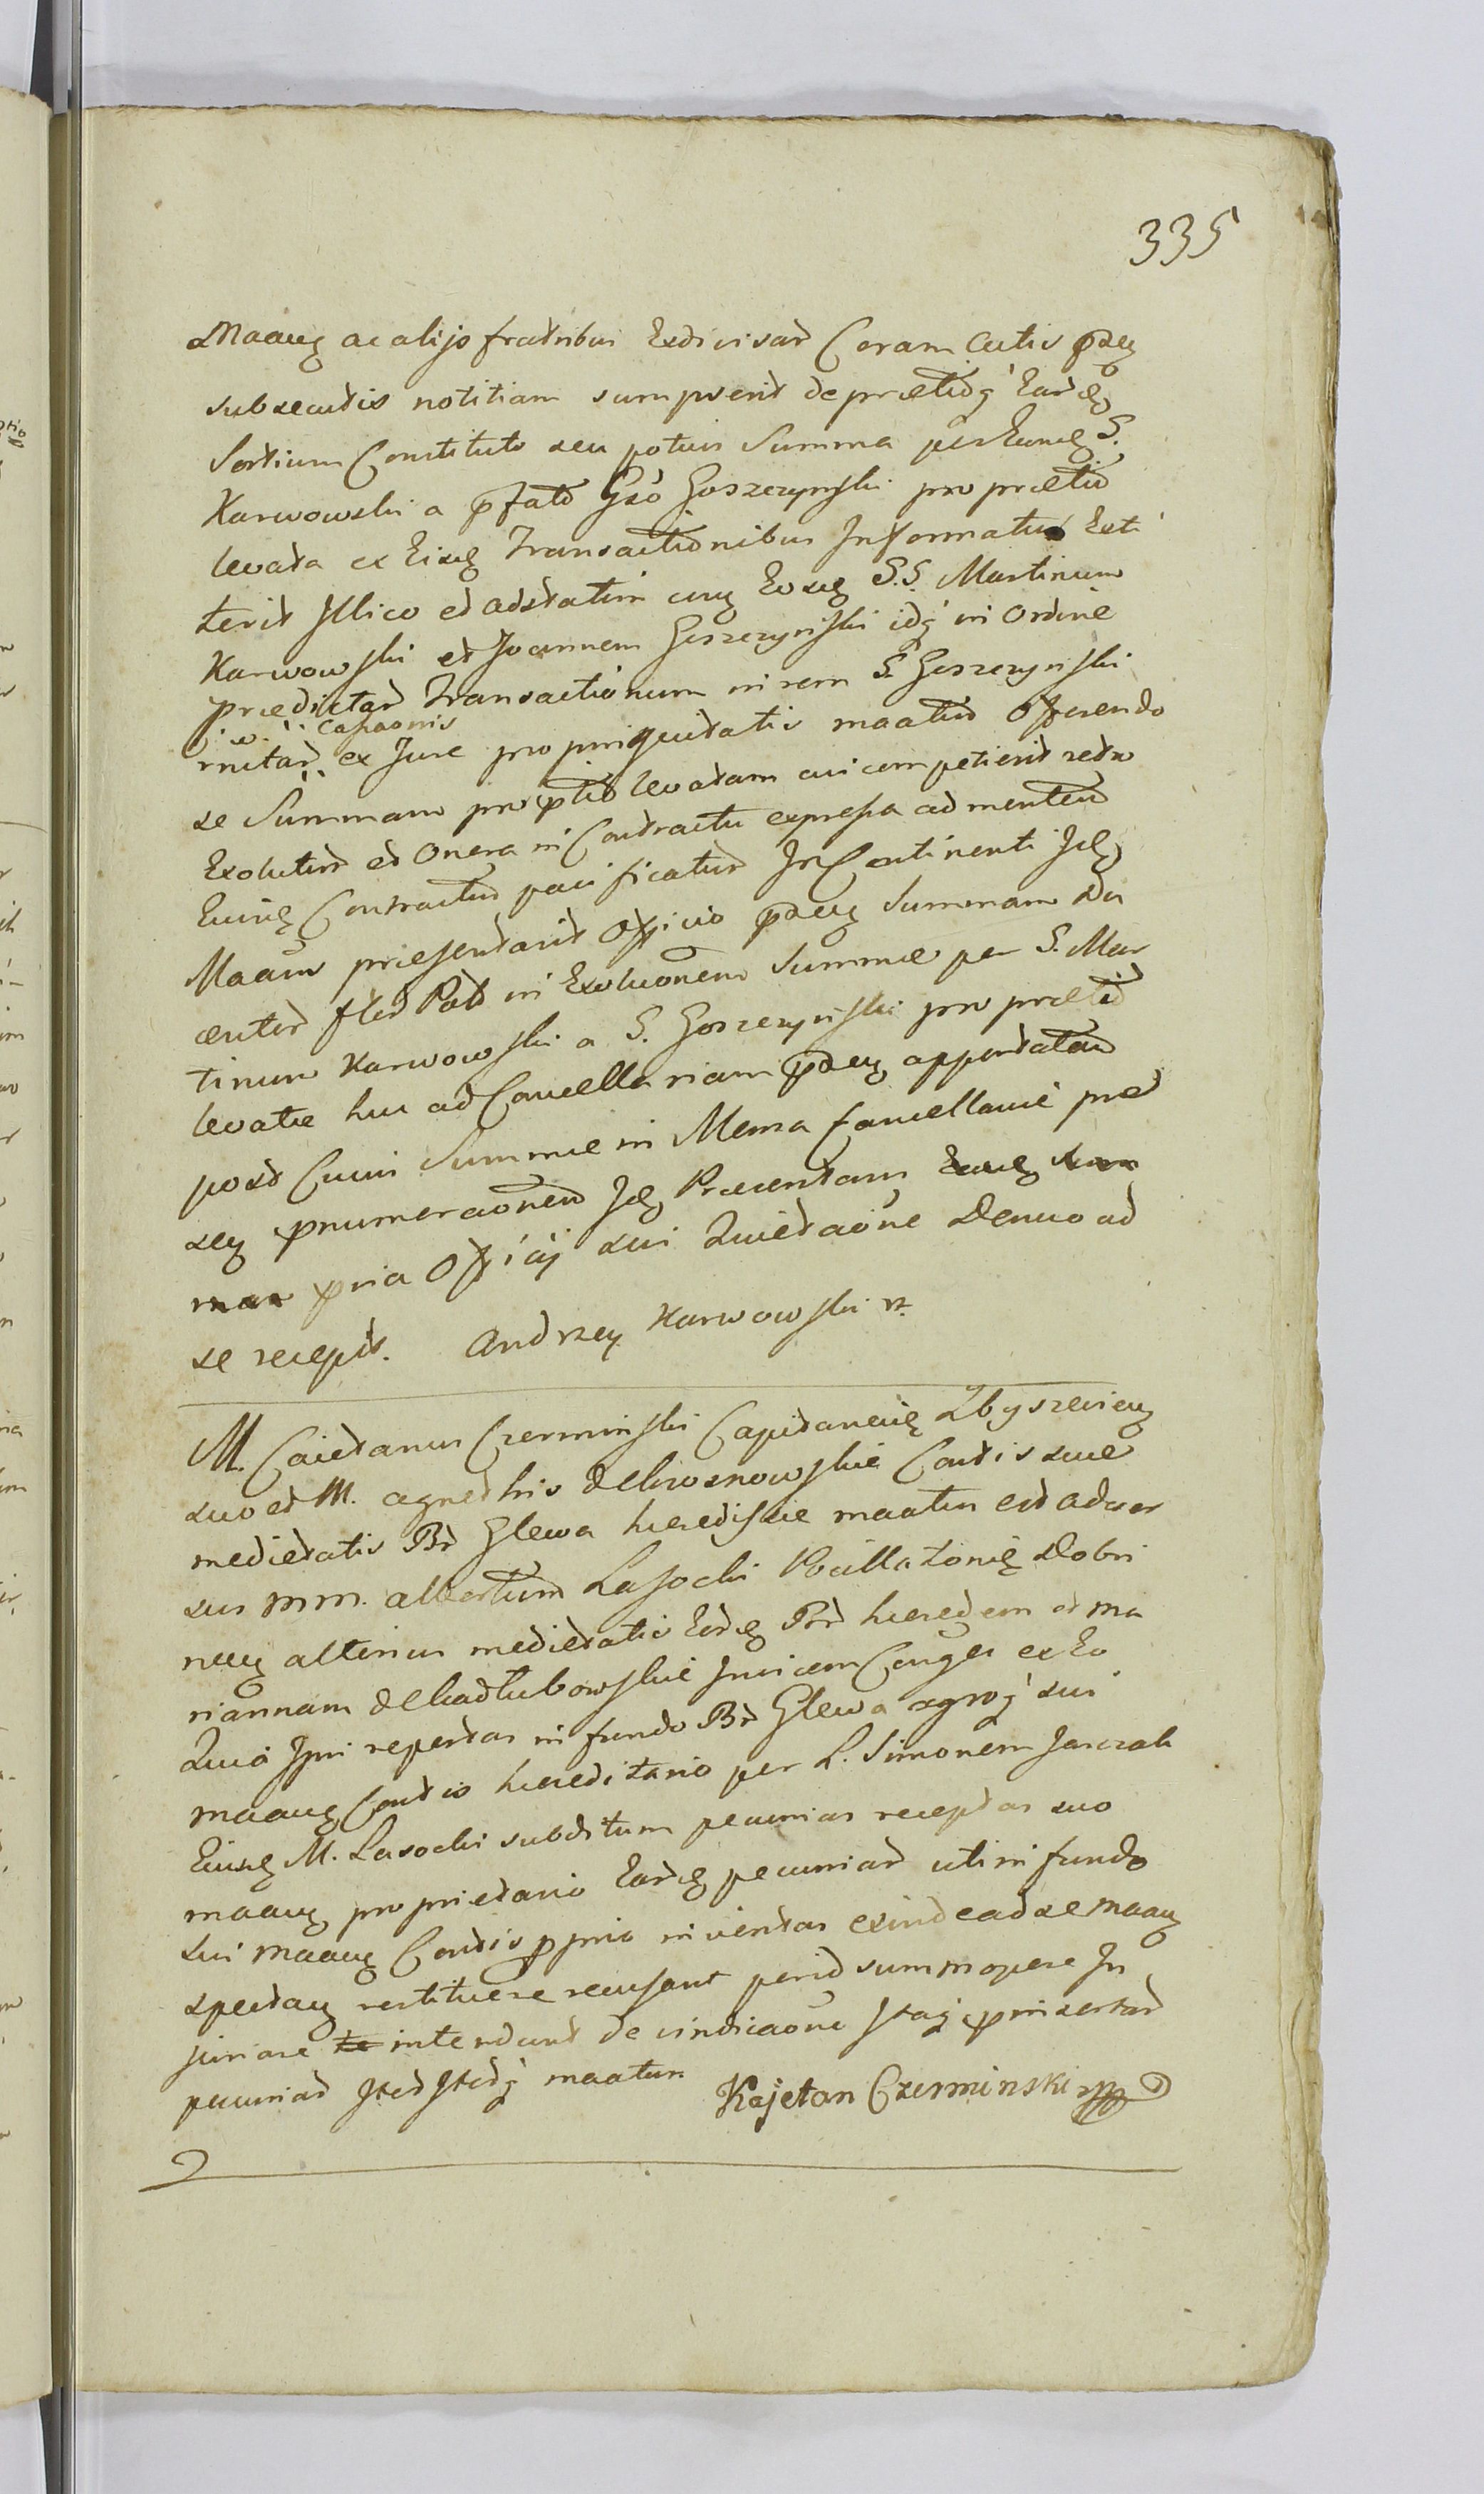 335
Maanę ac alijs fratribus Exdivisar Coram Actis pntę
subsecutis notitiam sumpserit de prætioq Eardę
Sortium Constituto seu potius Summa per Eundę S.
Karwowski a pfato Gso Goszczynski pro prætio
levata ex Eisdę Transactionibus Informatus Exti
terit Illico et adstatim cum Eosdę S.S. Martinum
Karwowski et Joannem Goszczynski idq in Ordine
Prædictar Transactionum in rem S. Goszczynski
Capaonis
ex Jure propinquitatis maatus Offerendo
se Summam pro ptio levatam cui competierit redu
Exolutur et Onera in Contractu expressa ad mentem
Eiusdę Contractus pacificatur In Continenti Idę
Maans præsentavit Officio pntę Summam Du
centor flor Pol in Exoluonem Summæ per S. Mar
tinum Karwowski a S. Goszczynski pro prætio
levatæ huc ad Cancellariam pntę apportatam
post Cuius Summæ in Mensa Cancellariæ præ
sen pnumeraonem Idę Præsentans
pria Officij sui Quietaone Denuo ad
se recepit. Andrzey Karwowski
M. Caietanus Czerminski Capitaneus Zbyszevien
suo et M. Agnethis de Chrosnowskie Contis suæ
medietatis Br Glewa hæredissæ maatur est adver
sus MM. Albertum Lasocki Pocillatorię Dobri
nen alterius medietatis Eordę Bnr hæredem et Ma
riannam de Chadtubowskie Invicem Conges ex Eo
Quia Ipsi repertas in fundo Br Glewa agroq sui
maanę Contis hæreditario per L. Simonem Jaszzak
Eiusdę M. Lasocki subditum pecunias receptas suo
maanę proprietario Eardę pecuniar uti in fundo
sui maanę Contis pprio inventas exinde ad se maanę
spectan restituere recusant perid summopere In
juriare intendunt de vindicaone Itaq pinsertar
pecuniar Iter Iterq maatur
Kajetan Czerminski mp